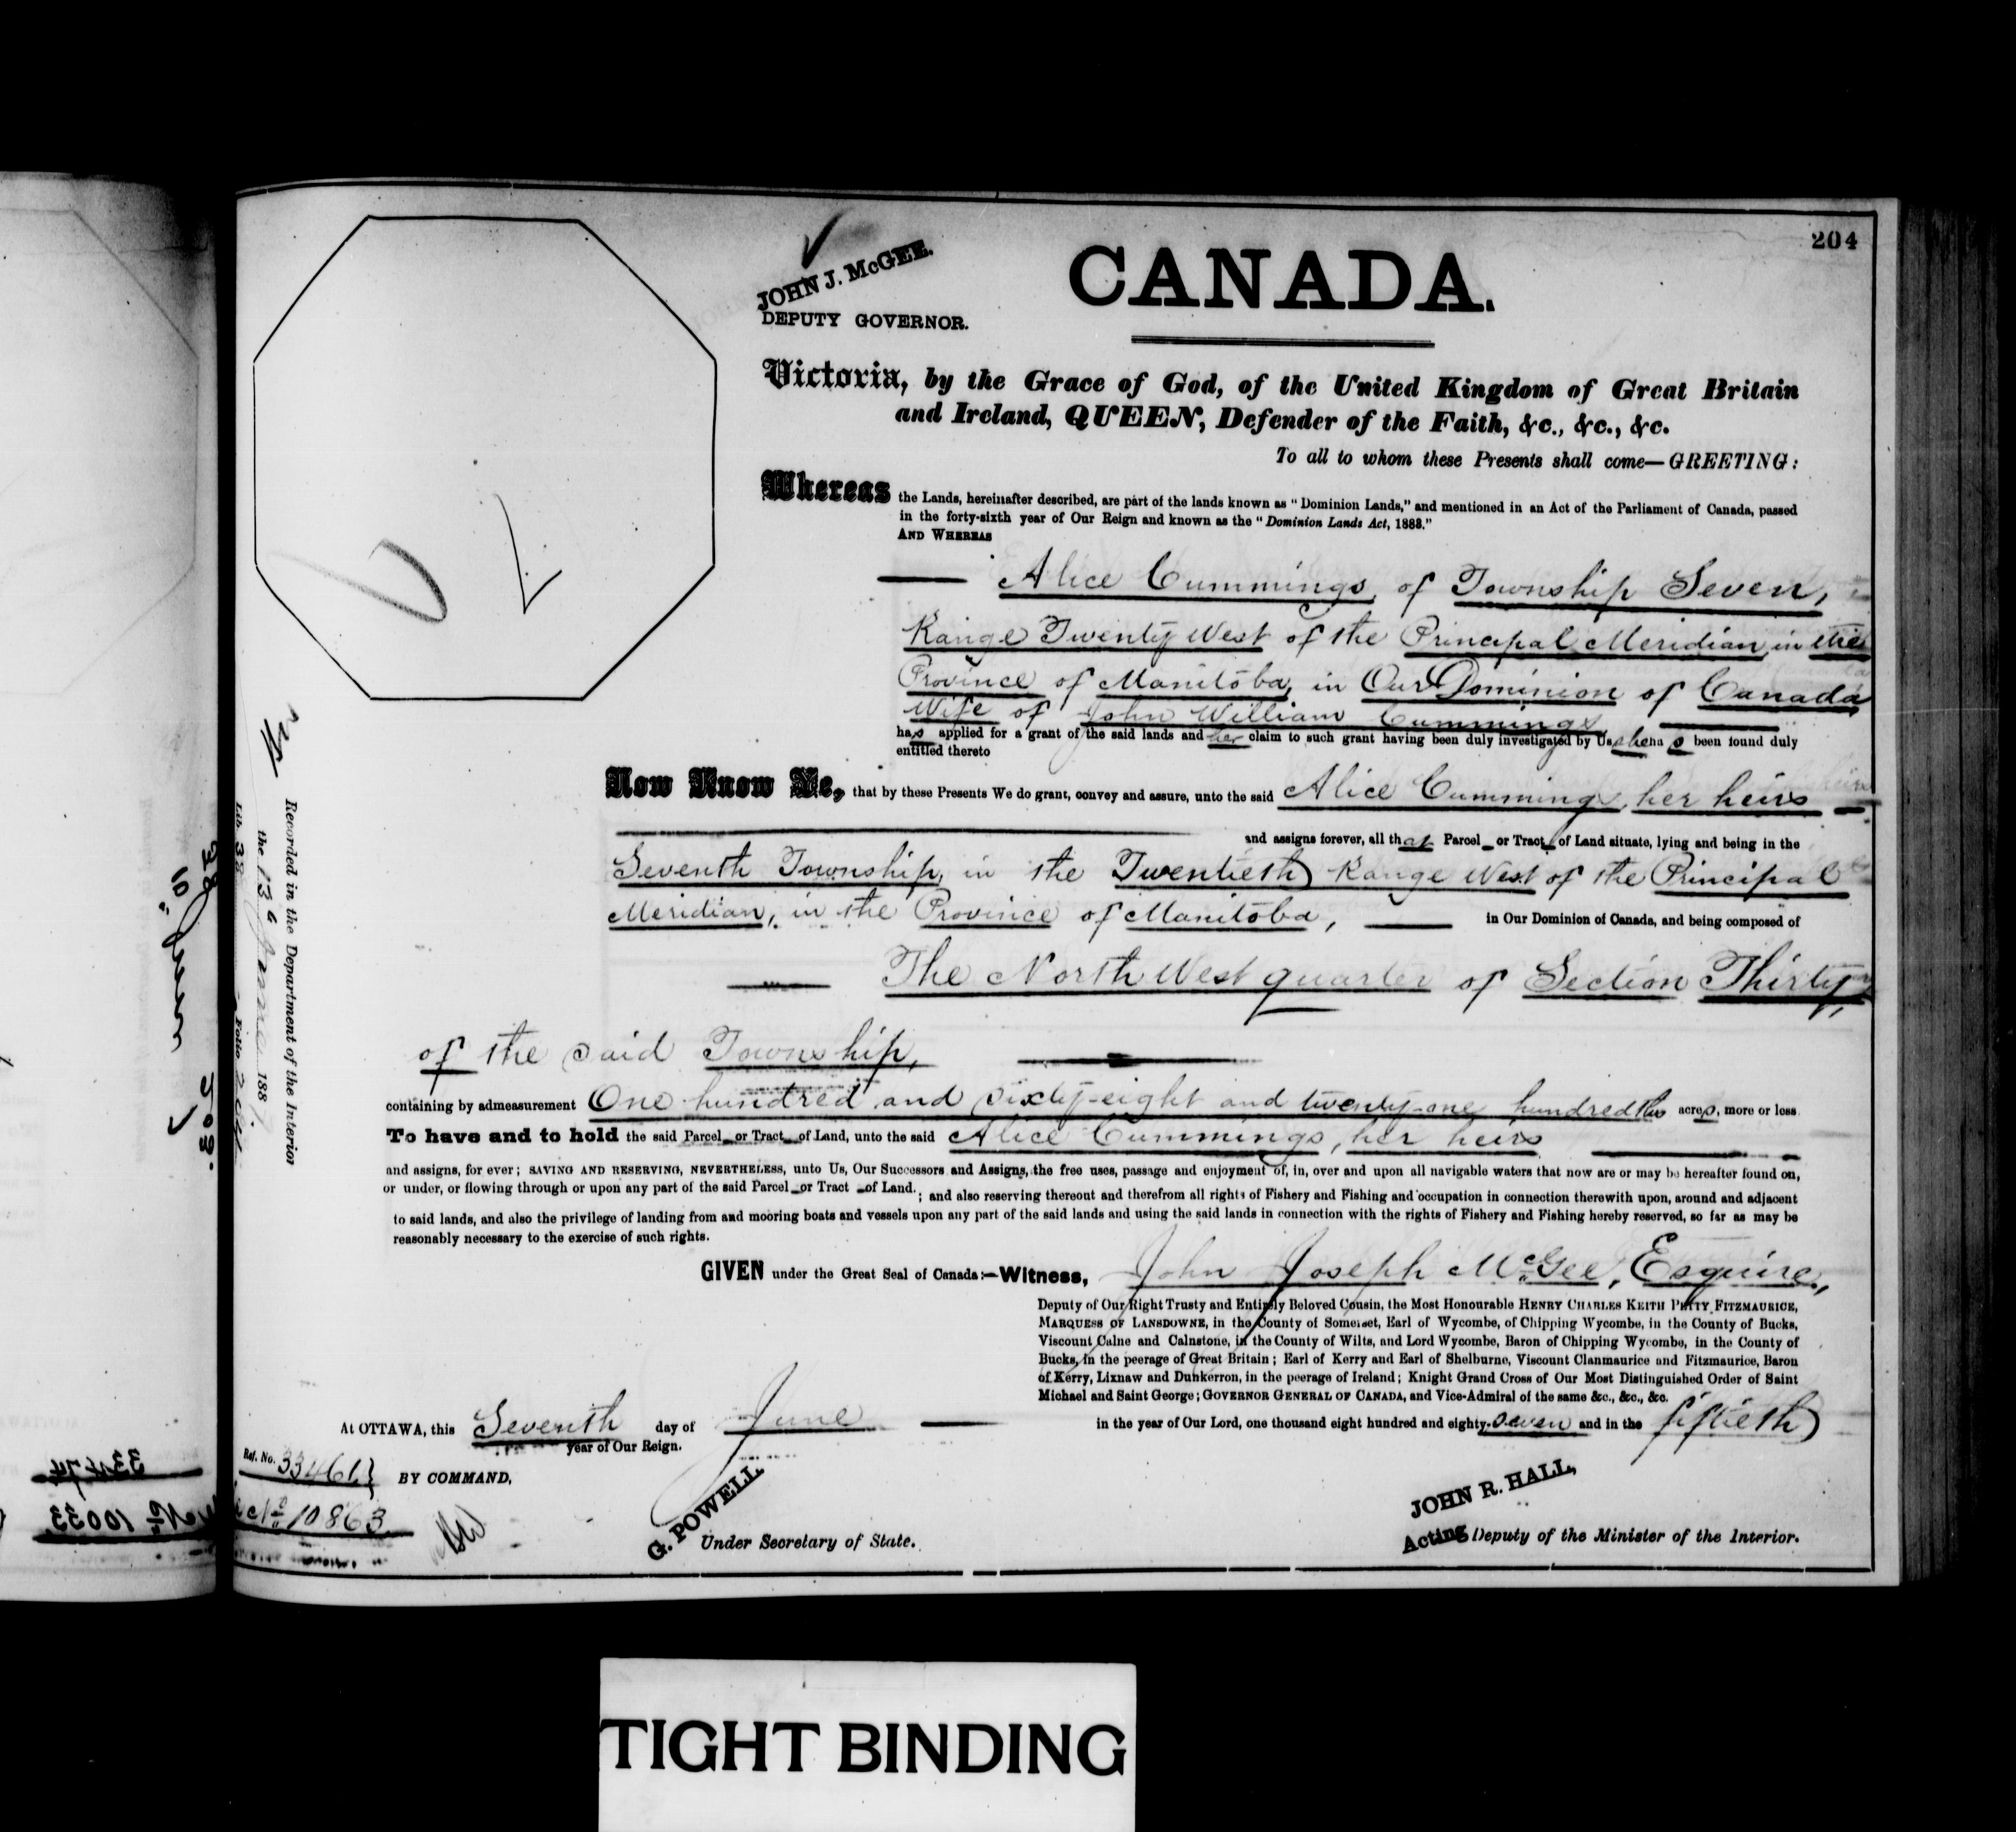 204
JOHN J. McGEE.
DEPUTY GOVERNOR.
CANADA.
Victoria, by the Grace of God, of the United Kingdom of Great Britain
and Ireland, QUEEN, Defender of the Faith, &c., &c., &c.
To all to whom these Presents shall come—GREETING:
Whereas the Lands, hereinafter described, are part of the lands known as "Dominion Lands," and mentioned in an Act of the Parliament of Canada, passed
in the forty-sixth year of Our Reign and known as the "Dominion Lands Act, 1883."
AND WHEREAS
Alice Cummings, of Township Seven,
Range Twenty West of the Principal Meridian, in the
Province of Manitoba, in Our Dominion of Canada
Wife of John William Cummings
has applied for a grant of the said lands and her claim to such grant having been duly investigated by Us she has been found duly
entitled thereto
Now Know Ye, that by these Presents We do grant, convey and assure, unto the said Alice Cummings, her heirs
and assigns forever, all that Parcel or Tract of Land situate, lying and being in the
Seventh Township, in the Twentieth Range West of the Principal
Meridian, in the Province of Manitoba, in Our Dominion of Canada, and being composed of
The North West quarter of Section Thirty,
of the said Township,
containing by admeasurement One hundred and sixty-eight and twenty-one hundredths acres, more or less.
To have and to hold the said Parcel or Tract of Land, unto the said Alice Cummings, her heirs
and assigns, for ever; SAVING AND RESERVING, NEVERTHELESS, unto Us, Our Successors and Assigns, the free uses, passage and enjoyment of, in, over and upon all navigable waters that now are or may be hereafter found on,
or under, or flowing through or upon any part of the said Parcel or Tract of Land.; and also reserving thereout and therefrom all rights of Fishery and Fishing and occupation in connection therewith upon, around and adjacent
to said lands, and also the privilege of landing from and mooring boats and vessels upon any part of the said lands and using the said lands in connection with the rights of Fishery and Fishing hereby reserved, so far as may be
reasonably necessary to the exercise of such rights.
GIVEN under the Great Seal of Canada:—Witness, John Joseph McGee, Esquire,
Deputy of Our Right Trusty and Entirely Beloved Cousin, the Most Honourable HENRY CHARLES KEITH PETTY FITZMAURICE,
MARQUESS OF LANSDOWNE, in the County of Somerset, Earl of Wycombe, of Chipping Wycombe, in the County of Bucks,
Viscount Calne and Calnstone, in the County of Wilts, and Lord Wycombe, Baron of Chipping Wycombe, in the County of
Bucks, in the peerage of Great Britain; Earl of Kerry and Earl of Shelburne, Viscount Clanmaurice and Fitzmaurice, Baron
of Kerry, Lixnaw and Dunkerron, in the peerage of Ireland; Knight Grand Cross of Our Most Distinguished Order of Saint
Michael and Saint George; GOVERNOR GENERAL OF CANADA, and Vice-Admiral of the same &c., &c., &c.
At OTTAWA, this Seventh day of June in the year of Our Lord, one thousand eight hundred and eighty-seven and in the fiftieth
year of Our Reign.
Ref. No. 33461
BY COMMAND,
No 10863
G. POWELL
Under Secretary of State.
JOHN R. HALL,
Acting Deputy of the Minister of the Interior.
Recorded in the Department of the Interior
the 13 June 1887
Lib. 38 Folio
TIGHT BINDING